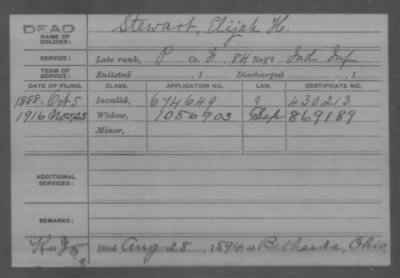 DEAD Stewart, Elijah H.
NAME OF SOLDIER:
SERVICE: Late rank, P Co. H, 84 Reg't Ind Inf
TERM OF SERVICE: Enlisted , 1 Discharged , 1
DATE OF FILING. CLASS. APPLICATION NO. LAW. CERTIFICATE NO.
1888. Oct 5 Invalid, 674649 J 430213
1916 Nov 23 Widow, 1056703 Sep 869189
Minor,
ADDITIONAL SERVICES:
REMARKS:
Died Aug 28, 1894, at Bethesda, Ohio,